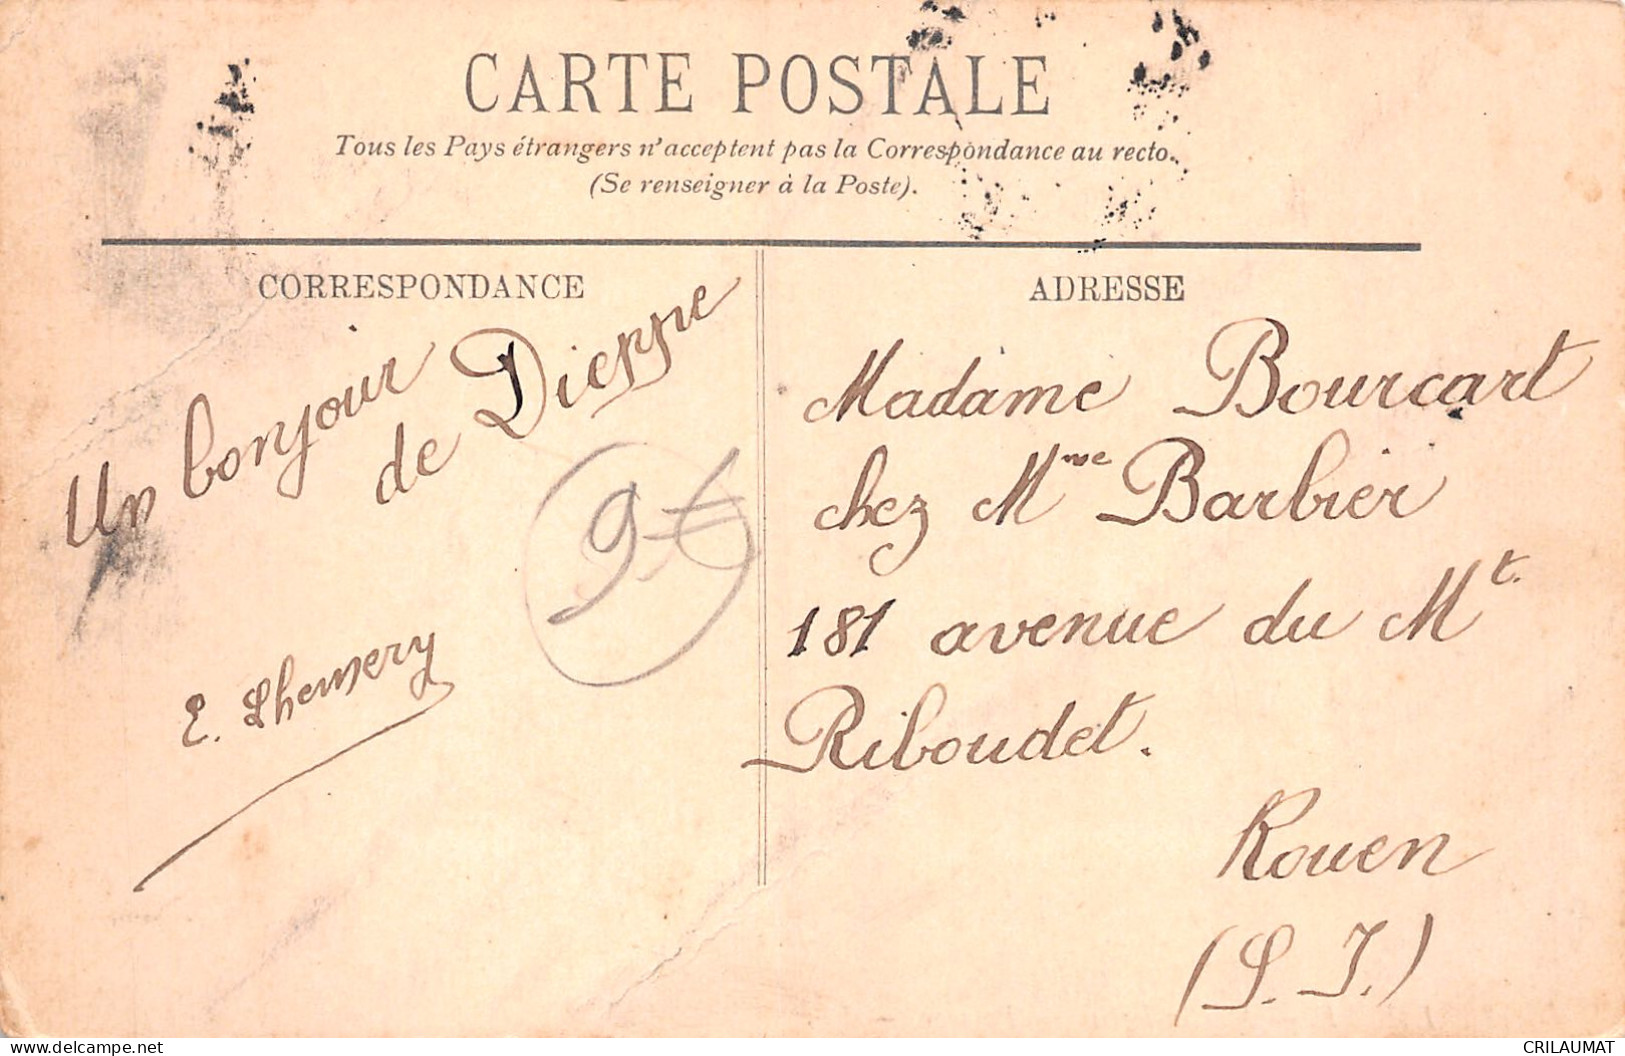 CARTE POSTALE
Tous les Pays étrangers n'acceptent pas la Correspondance au recto.
(Se renseigner à la Poste).
CORRESPONDANCE
Un bonjour
de Dieppe
9€
E. Lhemery
ADRESSE
Madame Bourcart
chez Mme Barbier
181 avenue du Mt.
Riboudet.
Rouen
(S. I.)
CRILAUMAT